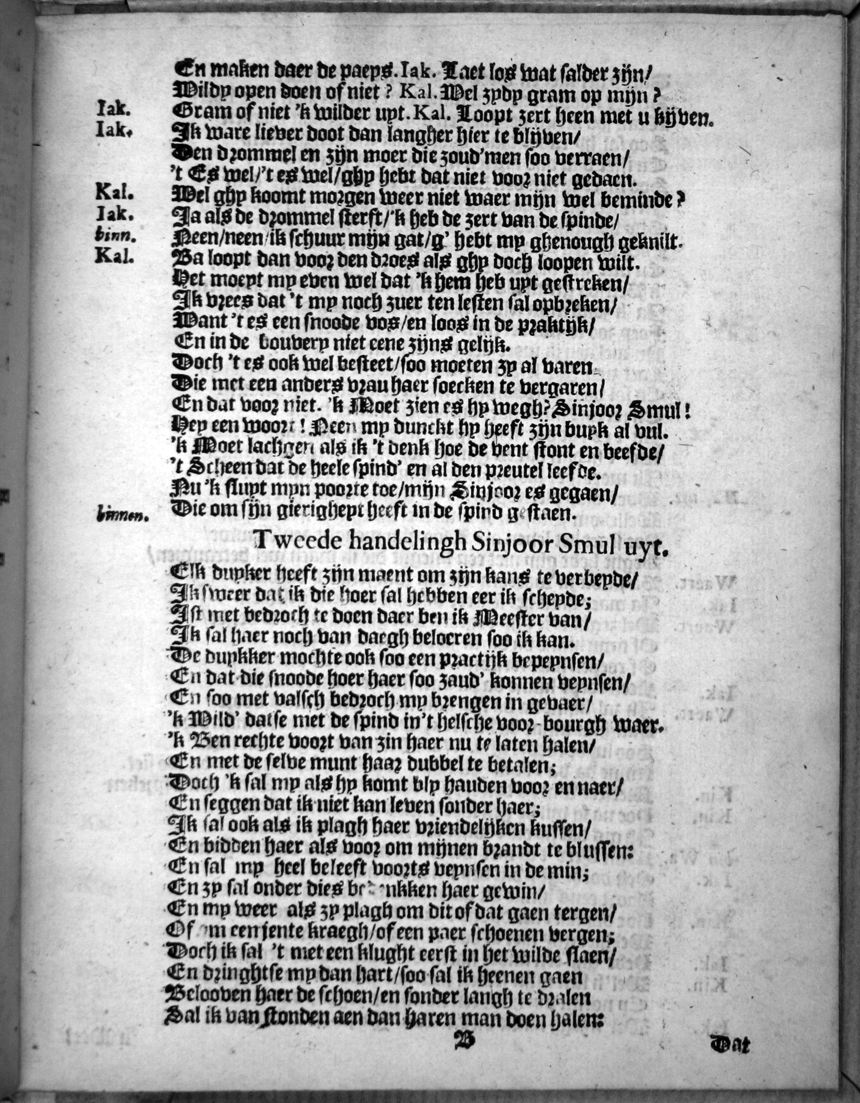 En maken daer de paeps. Iak. Laet los wat salder zijn/
Wildy open doen of niet? Kal. Wel zydy gram op mijn?
Iak. Gram of niet 'k wilder uyt. Kal. Loopt zert heen met u kijven.
Iak. Ik ware liever doot dan langher hier te blijven/
Den drommel en zijn moer die zoud'men soo verraen/
't Es wel/'t es wel/ghy hebt dat niet voor niet gedaen.
Kal. Wel ghy koomt morgen weer niet waer mijn wel beminde?
Iak. Ja als de drommel sterft/'k heb de zert van de spinde/
binn. Neen/neen/ik schuur mijn gat/g' hebt my ghenough geknilt.
Kal. Ba loopt dan voor den droes als ghy doch loopen wilt.
Het moeyt my even wel dat 'k hem heb uyt gestreken/
Ik vrees dat 't my noch zuer ten lesten sal opbreken/
Want 't es een snoode vos/en loos in de praktijk/
En in de bouvery niet eene zijns gelijk.
Doch 't es ook wel besteet/soo moeten zy al varen
Die met een anders vrau haer soecken te vergaren/
En dat voor niet. 'k Moet zien es hy wegh? Sinjoor Smul!
Hey een woort! Neen my dunckt hy heeft zijn buyk al vul.
'k Moet lachgen als ik 't denk hoe de vent stont en beefde/
't Scheen dat de heele spind' en al den preutel leefde.
Nu 'k sluyt myn poorte toe/mijn Sinjoor es gegaen/
binnen. Die om sijn gierigheyt heeft in de spind gestaen.
Tweede handelingh Sinjoor Smul uyt.
Elk duyker heeft zijn maent om zijn kans te verbeyde/
Ik sweer dat ik die hoer sal hebben eer ik scheyde;
Ist met bedroch te doen daer ben ik Meester van/
Ik sal haer noch van daegh beloeren soo ik kan.
De duykker mochte ook soo een practijk bepeynsen/
En dat die snoode hoer haer soo zaud' konnen veynsen/
En soo met valsch bedroch my brengen in gevaer/
'k Wild' datse met de spind in't helsche voor-bourgh waer.
'k Ben rechte voort van zin haer nu te laten halen/
En met de selve munt haar dubbel te betalen;
Doch 'k sal my als hy komt bly hauden voor en naer/
En seggen dat ik niet kan leven sonder haer;
Ik sal ook als ik plagh haer vriendelijken kussen/
En bidden haer als voor om mijnen brandt te blussen:
En sal my heel beleeft voorts veynsen in de min;
En zy sal onder dies haer gewin/
En my weer als zy plagh om dit of dat gaen tergen/
Of een jente kraegh/of een paer schoenen vergen;
Doch ik sal 't met een klught eerst in het wilde slaen/
En dringhtse my dan hart/soo sal ik heenen gaen
Belooven haer de schoen/en sonder langh te dralen
Sal ik van stonden aen dan haren man doen halen:
B
Dat